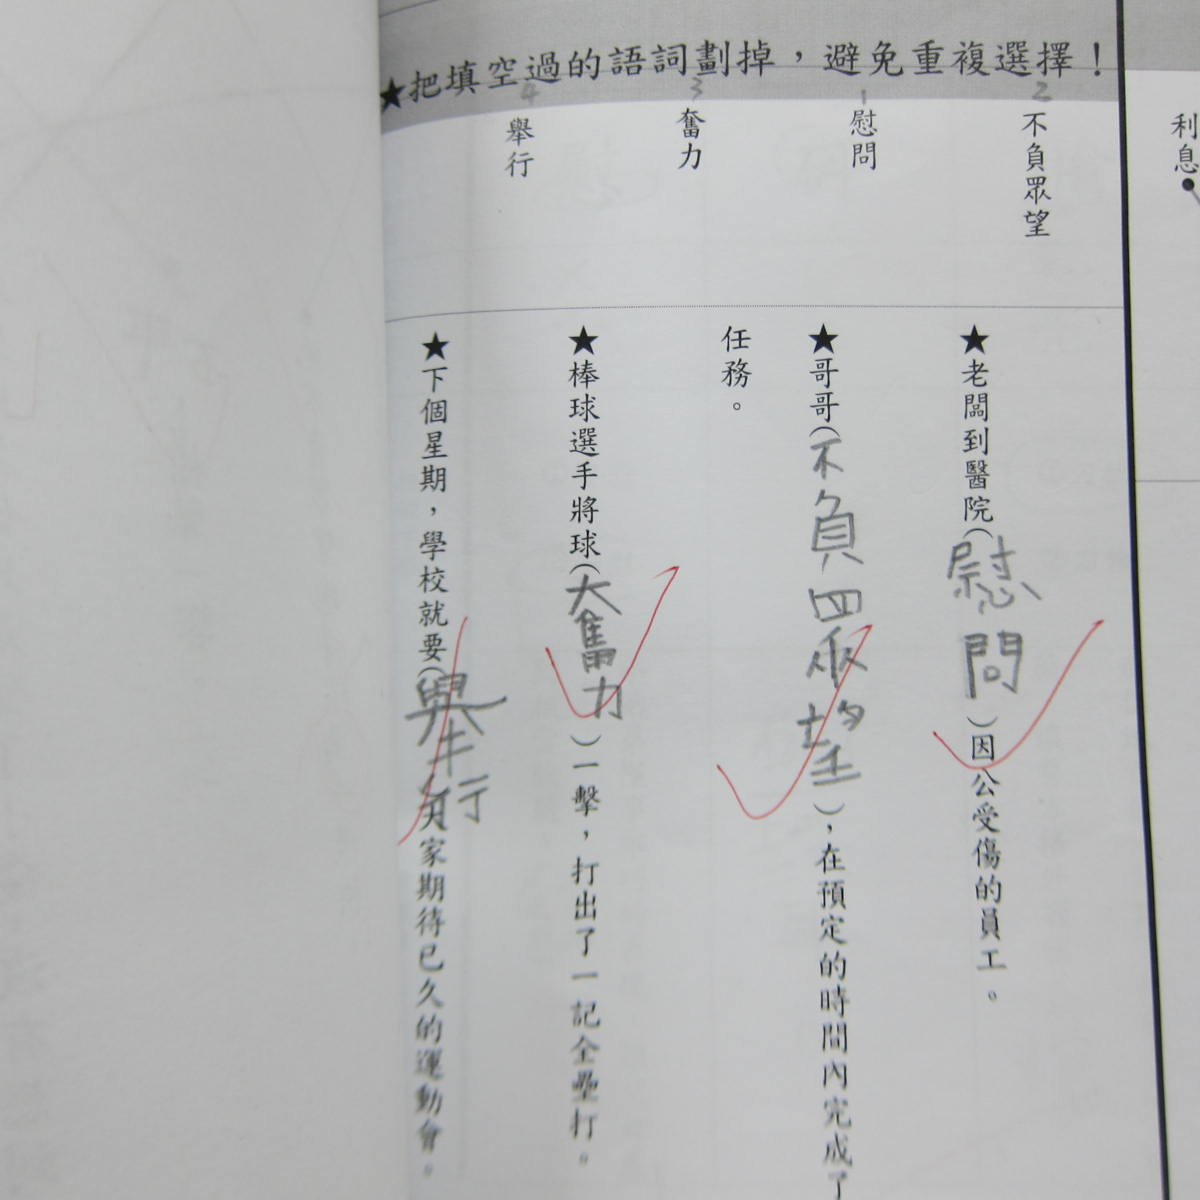 ★把填空過的語詞劃掉，避免重複選擇！
利息●
2不負眾望
1慰問
3奮力
4舉行
★老闆到醫院（慰問）因公受傷的員工。
★哥哥（不負眾望），在預定的時間內完成了
任務。
★棒球選手將球（奮力）一擊，打出了一記全壘打。
★下個星期，學校就要（舉行）大家期待已久的運動會。